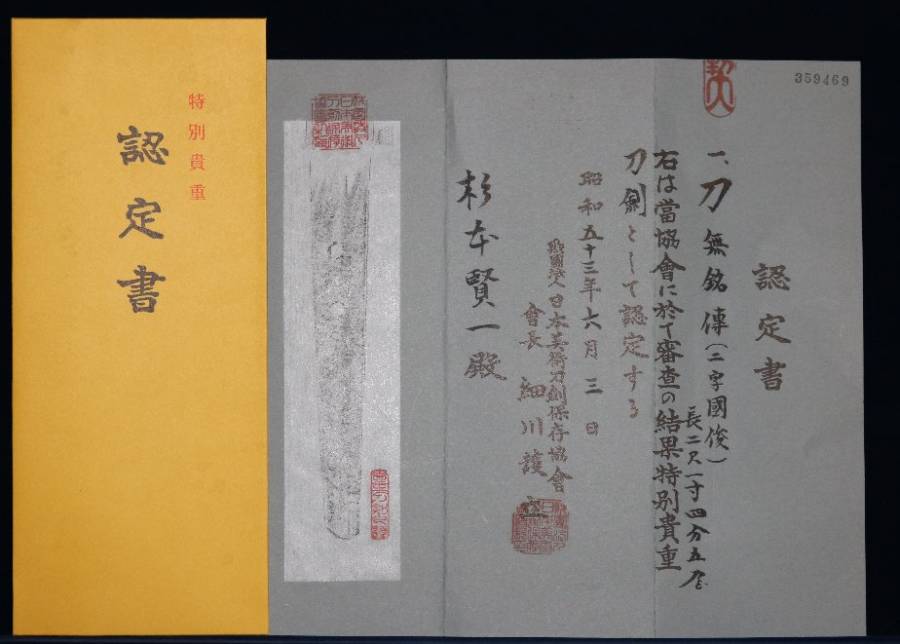 359469
認定書
一、刀 無銘 傳(二字國俊)
長二尺一寸四分五厘
右は當協會に於て審査の結果特別貴重
刀劍として認定する
昭和五十三年六月三日
財團法人日本美術刀劍保存協會
會長 細川護立
杉本賢一殿
特別貴重
認定書